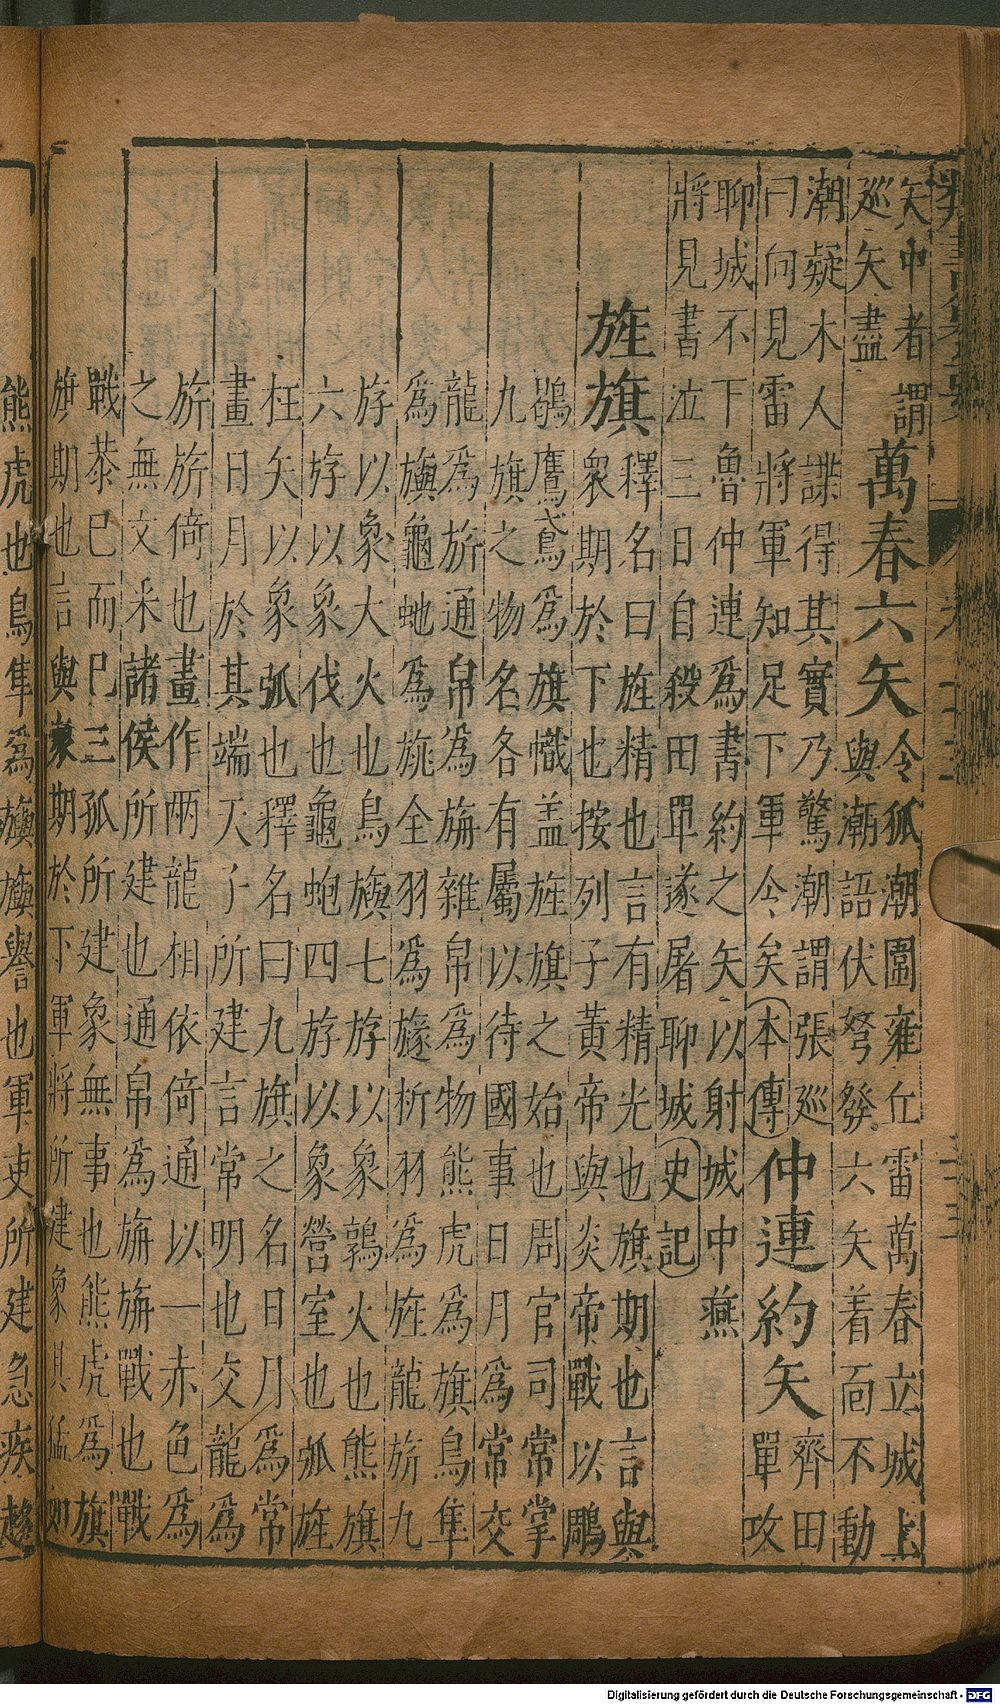 矢中者謂萬春六矢令狐潮圍雍丘雷萬春立城上
巡矢盡與潮語伏弩發六矢着面不動
潮疑木人諜得其實乃驚潮謂張巡
曰向見雷將軍知足下軍令矣本傳仲連約矢齊田單攻
聊城不下魯仲連爲書約之矢以射城中燕
將見書泣三日自殺田單遂屠聊城史記
旌旗
釋名曰旌精也言有精光也旗期也言與
衆期於下也按列子黃帝與炎帝戰以鵰
鶡鷹鳶爲旗幟盖旌旗之始也周官司常掌
九旗之物名各有屬以待國事日月爲常交
龍爲旂通帛爲旃雜帛爲物熊虎爲旗鳥隼
爲旟龜虵爲旐全羽爲旞析羽爲旌龍旂九
斿以象大火也鳥旟七斿以象鶉火也熊旗
六斿以象伐也龜蛇四斿以象營室也弧旌
枉矢以象弧也釋名曰九旗之名日月爲常
畫日月於其端天子所建言常明也交龍爲
旂旂倚也畫作兩龍相依倚通以一赤色爲
之無文采諸侯所建也通帛爲旃旃戰也戰
戰恭巳而巳三孤所建象無事也熊虎爲旗
旗期也言與衆期於下軍將所建象其猛如
熊虎也鳥隼爲旟旟譽也軍吏所建急疾趨
Digitalisierung gefördert durch die Deutsche Forschungsgemeinschaft - DFG